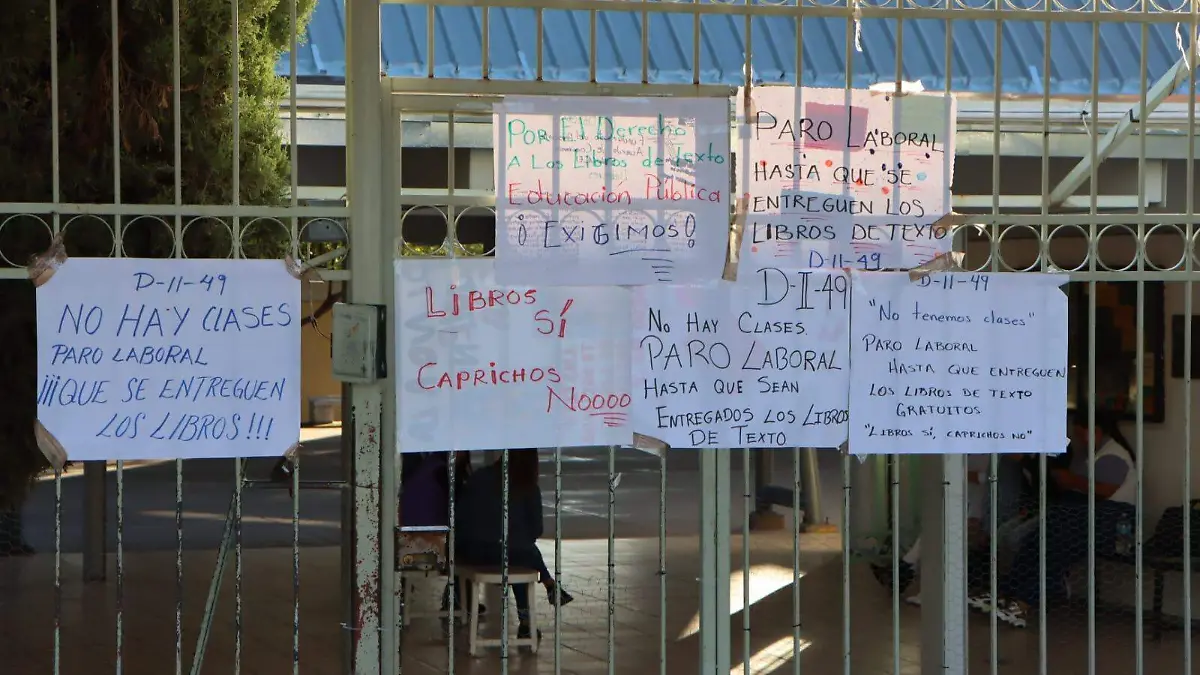 POR El Derecho
A Los Libros de Texto
Educación Pública
¡ EXIGIMOS!
PARO LABORAL
HASTA QUE SE
ENTREGUEN LOS
LIBROS DE TEXTO
D-11-49
D-11-49
NO HAY CLASES
PARO LABORAL
¡¡¡QUE SE ENTREGUEN
LOS LIBROS!!!
LIBROS
SÍ
CAPRICHOS
NOOOO
D-II-49
NO HAY CLASES.
PARO LABORAL
HASTA QUE SEAN
ENTREGADOS LOS LIBROS
DE TEXTO
D-11-49
"No tenemos clases"
PARO LABORAL
HASTA QUE ENTREGUEN
LOS LIBROS DE TEXTO
GRATUITOS
"LIBROS SÍ, CAPRICHOS NO"